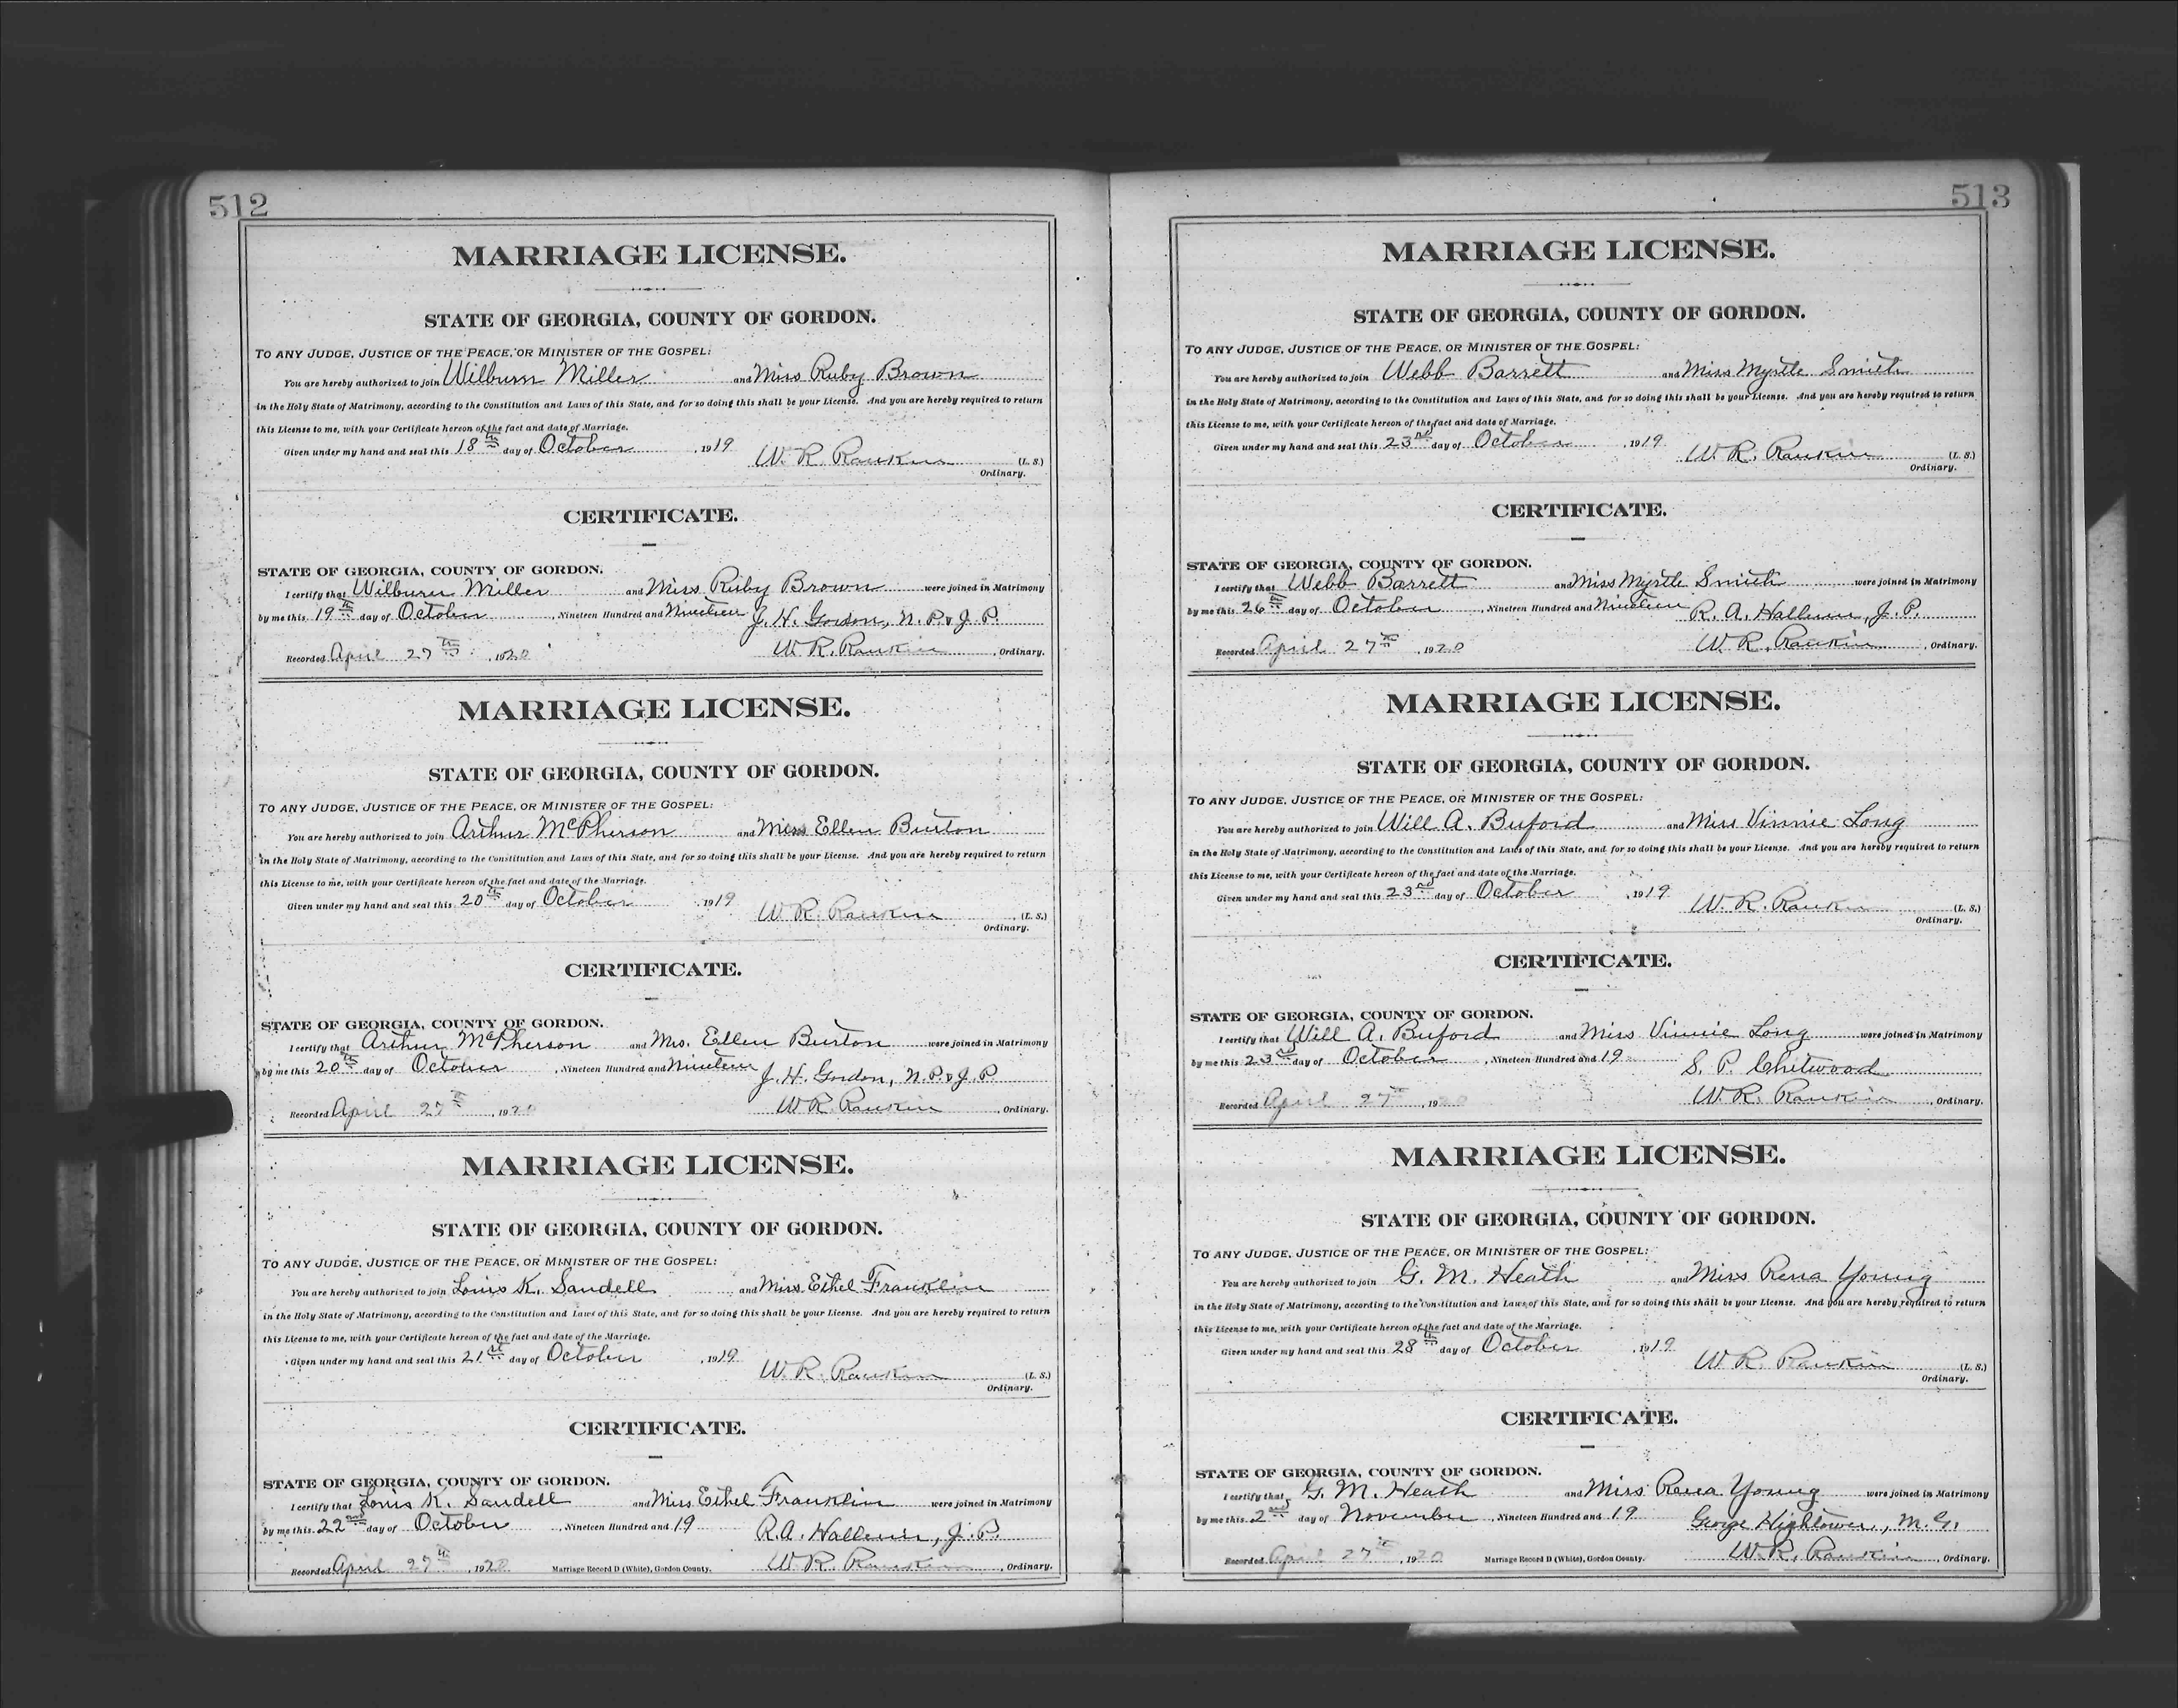 512
MARRIAGE LICENSE.
STATE OF GEORGIA, COUNTY OF GORDON.
TO ANY JUDGE, JUSTICE OF THE PEACE, OR MINISTER OF THE GOSPEL:
You are hereby authorized to join Wilburn Miller and Miss Ruby Brown
in the Holy State of Matrimony, according to the Constitution and Laws of this State, and for so doing this shall be your License. And you are hereby required to return
this License to me, with your Certificate hereon of the fact and date of Marriage.
Given under my hand and seal this 18th day of October, 1919 W. R. Rankin (L. S.)
Ordinary.
CERTIFICATE.
STATE OF GEORGIA, COUNTY OF GORDON.
I certify that Wilburn Miller and Miss Ruby Brown were joined in Matrimony
by me this 19th day of October, Nineteen Hundred and Nineteen J. H. Gordon, N. P. & J. P.
Recorded April 27th, 1920 W. R. Rankin, Ordinary.
MARRIAGE LICENSE.
STATE OF GEORGIA, COUNTY OF GORDON.
TO ANY JUDGE, JUSTICE OF THE PEACE, OR MINISTER OF THE GOSPEL:
You are hereby authorized to join Arthur McPherson and Mrs Ellen Burton
in the Holy State of Matrimony, according to the Constitution and Laws of this State, and for so doing this shall be your License. And you are hereby required to return
this License to me, with your Certificate hereon of the fact and date of the Marriage.
Given under my hand and seal this 20th day of October, 1919 W. R. Rankin (L. S.)
Ordinary.
CERTIFICATE.
STATE OF GEORGIA, COUNTY OF GORDON.
I certify that Arthur McPherson and Mrs. Ellen Burton were joined in Matrimony
by me this 20th day of October, Nineteen Hundred and Nineteen J. H. Gordon, N. P. & J. P.
Recorded April 27th, 1920 W. R. Rankin, Ordinary.
MARRIAGE LICENSE.
STATE OF GEORGIA, COUNTY OF GORDON.
TO ANY JUDGE, JUSTICE OF THE PEACE, OR MINISTER OF THE GOSPEL:
You are hereby authorized to join Louis K. Sandell and Miss Ethel Franklin
in the Holy State of Matrimony, according to the Constitution and Laws of this State, and for so doing this shall be your License. And you are hereby required to return
this License to me, with your Certificate hereon of the fact and date of the Marriage.
Given under my hand and seal this 21st day of October, 1919 W. R. Rankin (L. S.)
Ordinary.
CERTIFICATE.
STATE OF GEORGIA, COUNTY OF GORDON.
I certify that Louis K. Sandell and Miss Ethel Franklin were joined in Matrimony
by me this 22nd day of October, Nineteen Hundred and 19 R. A. Hallum, J. P.
Recorded April 27th, 1920 Marriage Record D (White), Gordon County. W. R. Rankin, Ordinary.
513
MARRIAGE LICENSE.
STATE OF GEORGIA, COUNTY OF GORDON.
TO ANY JUDGE, JUSTICE OF THE PEACE, OR MINISTER OF THE GOSPEL:
You are hereby authorized to join Webb Barrett and Miss Myrtle Smith
in the Holy State of Matrimony, according to the Constitution and Laws of this State, and for so doing this shall be your License. And you are hereby required to return
this License to me, with your Certificate hereon of the fact and date of Marriage.
Given under my hand and seal this 23rd day of October, 1919 W. R. Rankin (L. S.)
Ordinary.
CERTIFICATE.
STATE OF GEORGIA, COUNTY OF GORDON.
I certify that Webb Barrett and Miss Myrtle Smith were joined in Matrimony
by me this 26th day of October, Nineteen Hundred and Nineteen R. A. Hallum, J. P.
Recorded April 27th, 1920 W. R. Rankin, Ordinary.
MARRIAGE LICENSE.
STATE OF GEORGIA, COUNTY OF GORDON.
TO ANY JUDGE, JUSTICE OF THE PEACE, OR MINISTER OF THE GOSPEL:
You are hereby authorized to join Will A. Buford and Miss Vinnie Long
in the Holy State of Matrimony, according to the Constitution and Laws of this State, and for so doing this shall be your License. And you are hereby required to return
this License to me, with your Certificate hereon of the fact and date of the Marriage.
Given under my hand and seal this 23rd day of October, 1919 W. R. Rankin (L. S.)
Ordinary.
CERTIFICATE.
STATE OF GEORGIA, COUNTY OF GORDON.
I certify that Will A. Buford and Miss Vinnie Long were joined in Matrimony
by me this 23rd day of October, Nineteen Hundred and 19 S. P. Chitwood
Recorded April 27th, 1920 W. R. Rankin, Ordinary.
MARRIAGE LICENSE.
STATE OF GEORGIA, COUNTY OF GORDON.
TO ANY JUDGE, JUSTICE OF THE PEACE, OR MINISTER OF THE GOSPEL:
You are hereby authorized to join G. M. Heath and Miss Rena Young
in the Holy State of Matrimony, according to the Constitution and Laws of this State, and for so doing this shall be your License. And you are hereby required to return
this License to me, with your Certificate hereon of the fact and date of the Marriage.
Given under my hand and seal this 28th day of October, 1919 W. R. Rankin (L. S.)
Ordinary.
CERTIFICATE.
STATE OF GEORGIA, COUNTY OF GORDON.
I certify that G. M. Heath and Miss Rena Young were joined in Matrimony
by me this 2nd day of November, Nineteen Hundred and 19 George Hightower, M. G.
Recorded April 27th, 1920 Marriage Record D (White), Gordon County. W. R. Rankin, Ordinary.